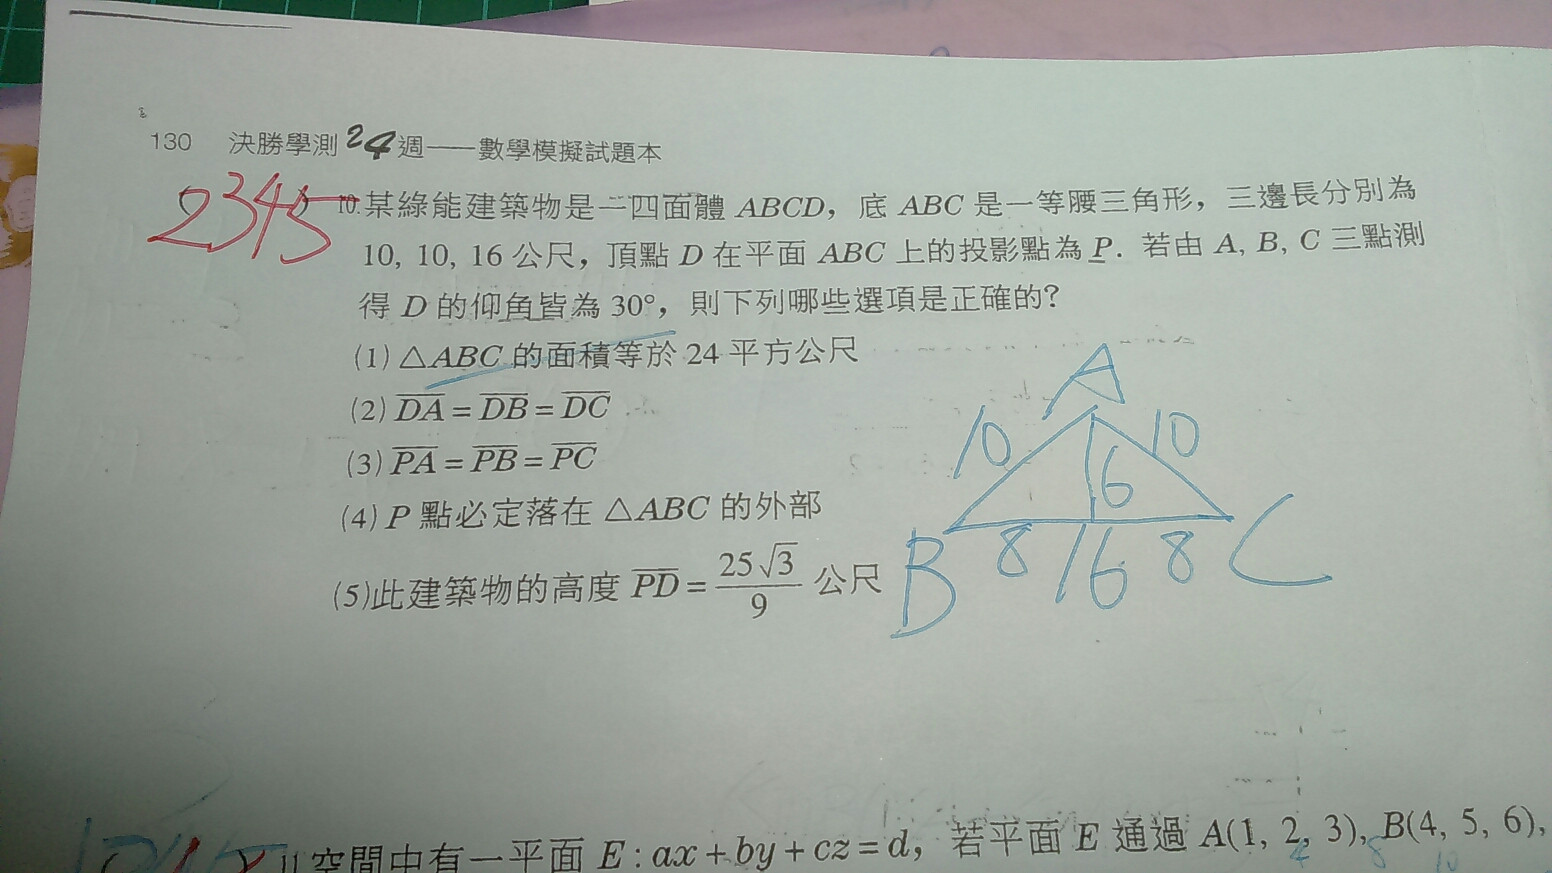 130 決勝學測 24 週——數學模擬試題本
2345 10.某綠能建築物是一四面體 ABCD，底 ABC 是一等腰三角形，三邊長分別為
10, 10, 16 公尺，頂點 D 在平面 ABC 上的投影點為 P．若由 A, B, C 三點測
得 D 的仰角皆為 30°，則下列哪些選項是正確的？
(1) △ABC 的面積等於 24 平方公尺
(2) DA = DB = DC
(3) PA = PB = PC
(4) P 點必定落在 △ABC 的外部
(5)此建築物的高度 PD = 25√3/9 公尺
A
10 10
6
B 8 16 8 C
11.空間中有一平面 E : ax + by + cz = d，若平面 E 通過 A(1, 2, 3), B(4, 5, 6),
4 8 10